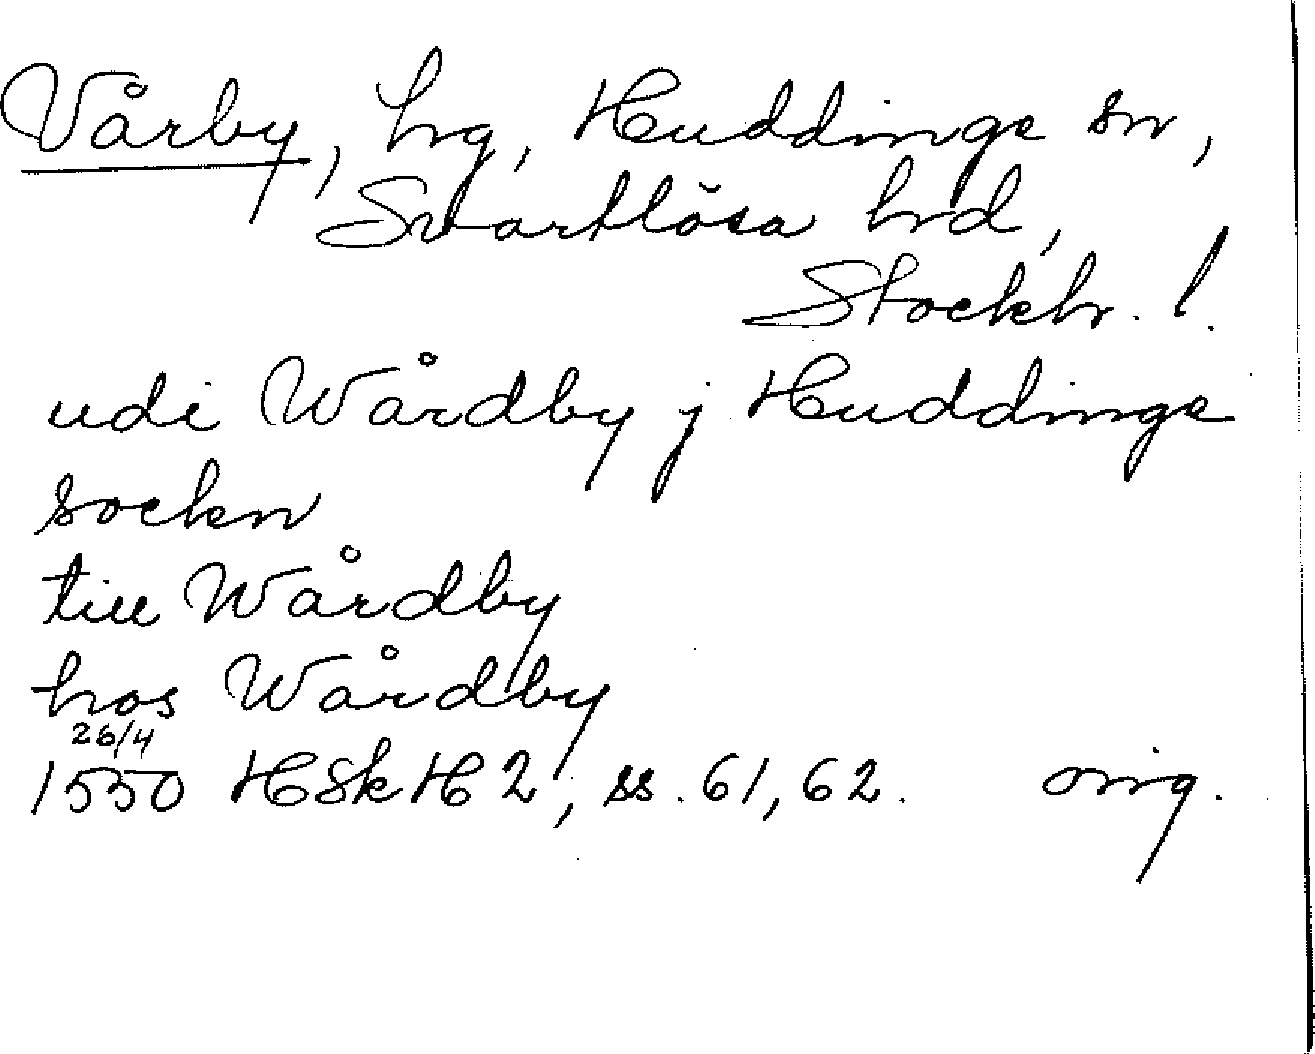 Vårby, hg, Huddinge sn,
Svartlösa hd,
Stockh. l.
udi Wårdby j Huddinge
sockn
till Wårdby
hos Wårdby
26/4
1550 HSkH 2, ss. 61, 62. orig.